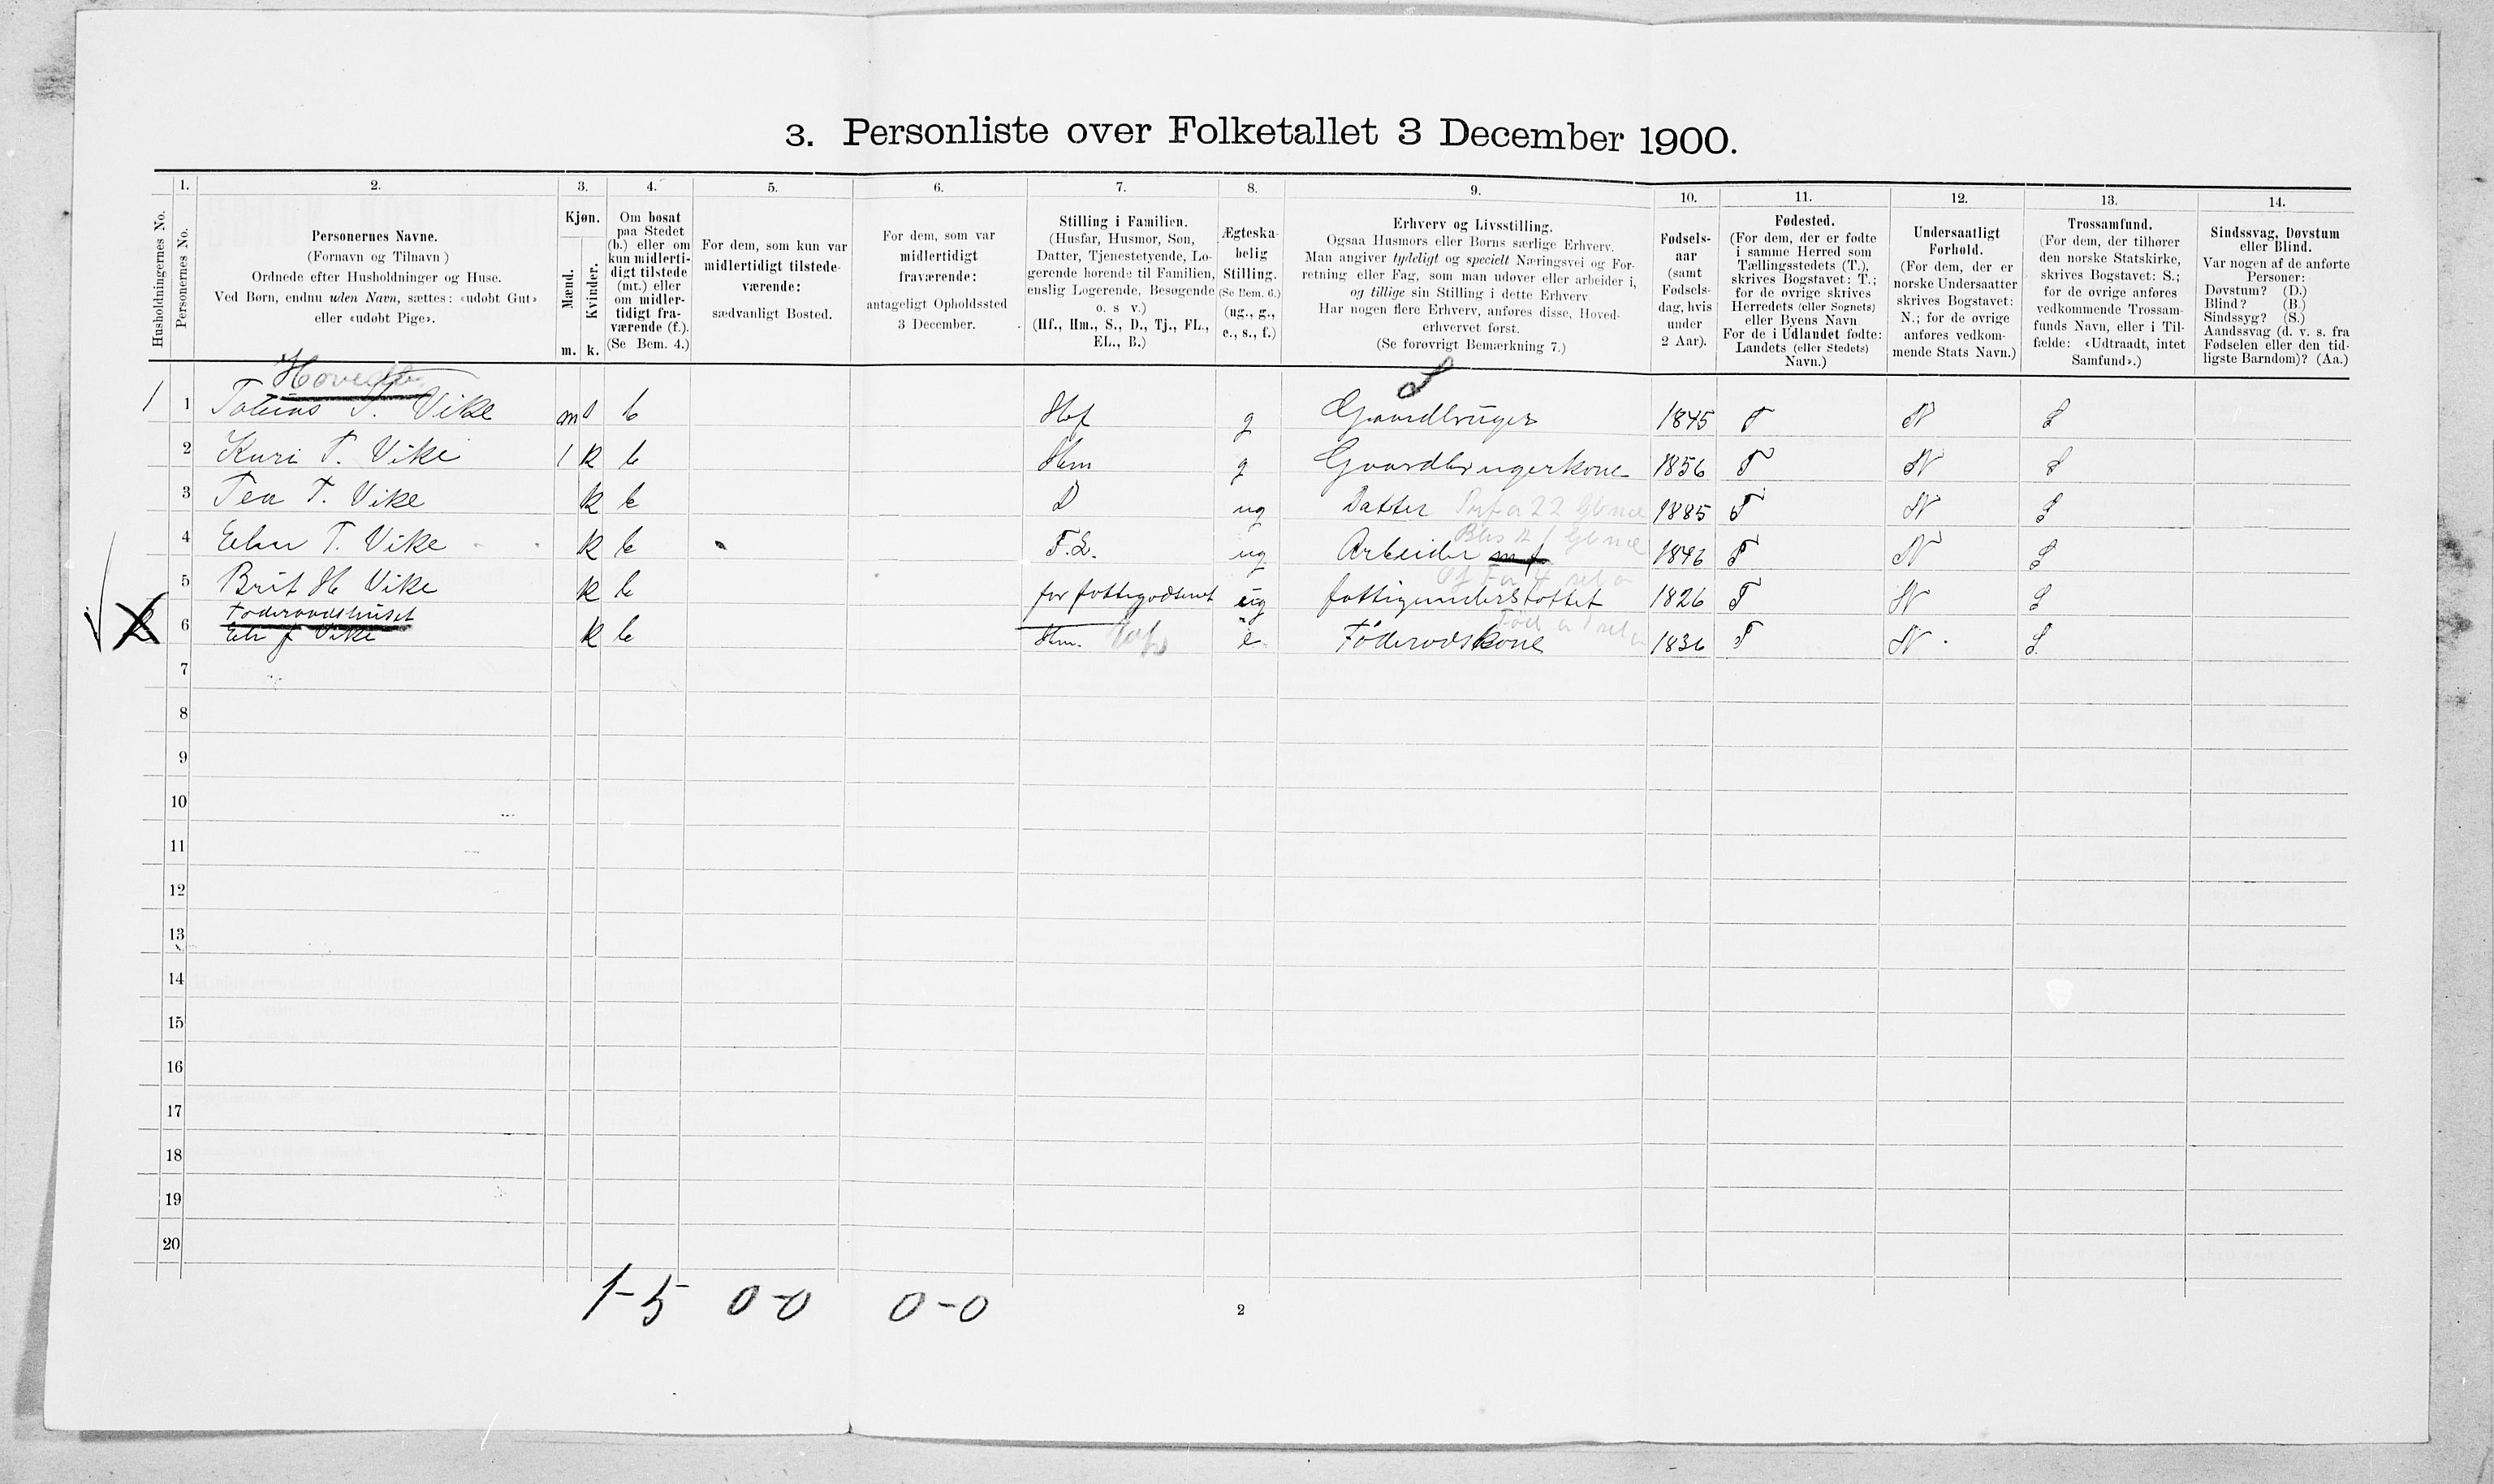 3. Personliste over Folketallet 3 December 1900.
1. 2. 3. 4. 5. 6. 7. 8. 9. 10. 11. 12. 13. 14.
Husholdningernes No.
Personernes No.
Personernes Navne.
(Fornavn og Tilnavn)
Ordnede efter Husholdninger og Huse.
Ved Børn, endnu uden Navn, sættes: «udøbt Gut»
eller «udøbt Pige».
Kjøn.
Mænd.
Kvinder.
m. k.
Om bosat
paa Stedet
(b.) eller om
kun midlerti-
digt tilstede
(mt.) eller
om midler-
tidigt fra-
værende (f.).
(Se Bem. 4.)
For dem, som kun var
midlertidigt tilstede-
værende:
sædvanligt Bosted.
For dem, som var
midlertidigt
fraværende:
antageligt Opholdssted
3 December.
Stilling i Familien.
(Husfar, Husmor, Søn,
Datter, Tjenestetyende, Lo-
gerende hørende til Familien,
enslig Logerende, Besøgende
o. s v.)
(Hf., Hm., S., D., Tj., FL.,
EL., B.)
Ægteska-
belig
Stilling.
(Se Bem. 6.)
(ug., g.,
e., s., f.)
Erhverv og Livsstilling.
Ogsaa Husmors eller Børns særlige Erhverv.
Man angiver tydeligt og specielt Næringsvei og For-
retning eller Fag, som man udøver eller arbeider i,
og tillige sin Stilling i dette Erhverv
Har nogen flere Erhverv, anføres disse, Hoved-
erhvervet først.
(Se forøvrigt Bemærkning 7.)
Fødsels-
aar
(samt
Fødsels-
dag, hvis
under
2 Aar).
Fødested.
(For dem, der er fødte
i samme Herred som
Tællingsstedets (T.),
skrives Bogstavet: T.;
for de øvrige skrives
Herredets (eller Sognets)
eller Byens Navn
For de i Udlandet fødte:
Landets (eller Stedets)
Navn.)
Undersaatligt
Forhold.
(For dem, der er
norske Undersaatter
skrives Bogstavet:
N.; for de øvrige
anføres vedkom-
mende Stats Navn.)
Trossamfund.
(For dem, der tilhører
den norske Statskirke,
skrives Bogstavet: S.;
for de øvrige anføres
vedkommende Trossam-
funds Navn, eller i Til-
fælde: «Udtraadt, intet
Samfund».)
Sindssvag, Døvstum
eller Blind.
Var nogen af de anførte
Personer:
Døvstum? (D.)
Blind? (B.)
Sindssyg? (S.)
Aandssvag (d. v. s. fra
Fødselen eller den tid-
ligste Barndom)? (Aa.)
S
1 1 Tobias T. Vike m b Hf g Gaardbruger 1845 T N S
2 Kuri T. Vike k b Hm g Gaardbrugerkone 1856 T N S
3 Tea T. Vike k b D ug Datter 1885 T N S
4 T. Vike k b F.L. ug Arbeider T N S
5 Brit H Vike k b for ug fattigunderstøttet 1826 T N S
Føderaadshuset
6 Vike k b Hm. e Føderodskone 1836 T N S
7
8
9
10
11
12
13
14
15
16
17
18
19
20
1-5 0-0 0-0
2